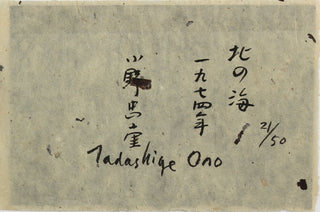 北の海
一九七四年
小野忠重
21/50
Tadashige Ono